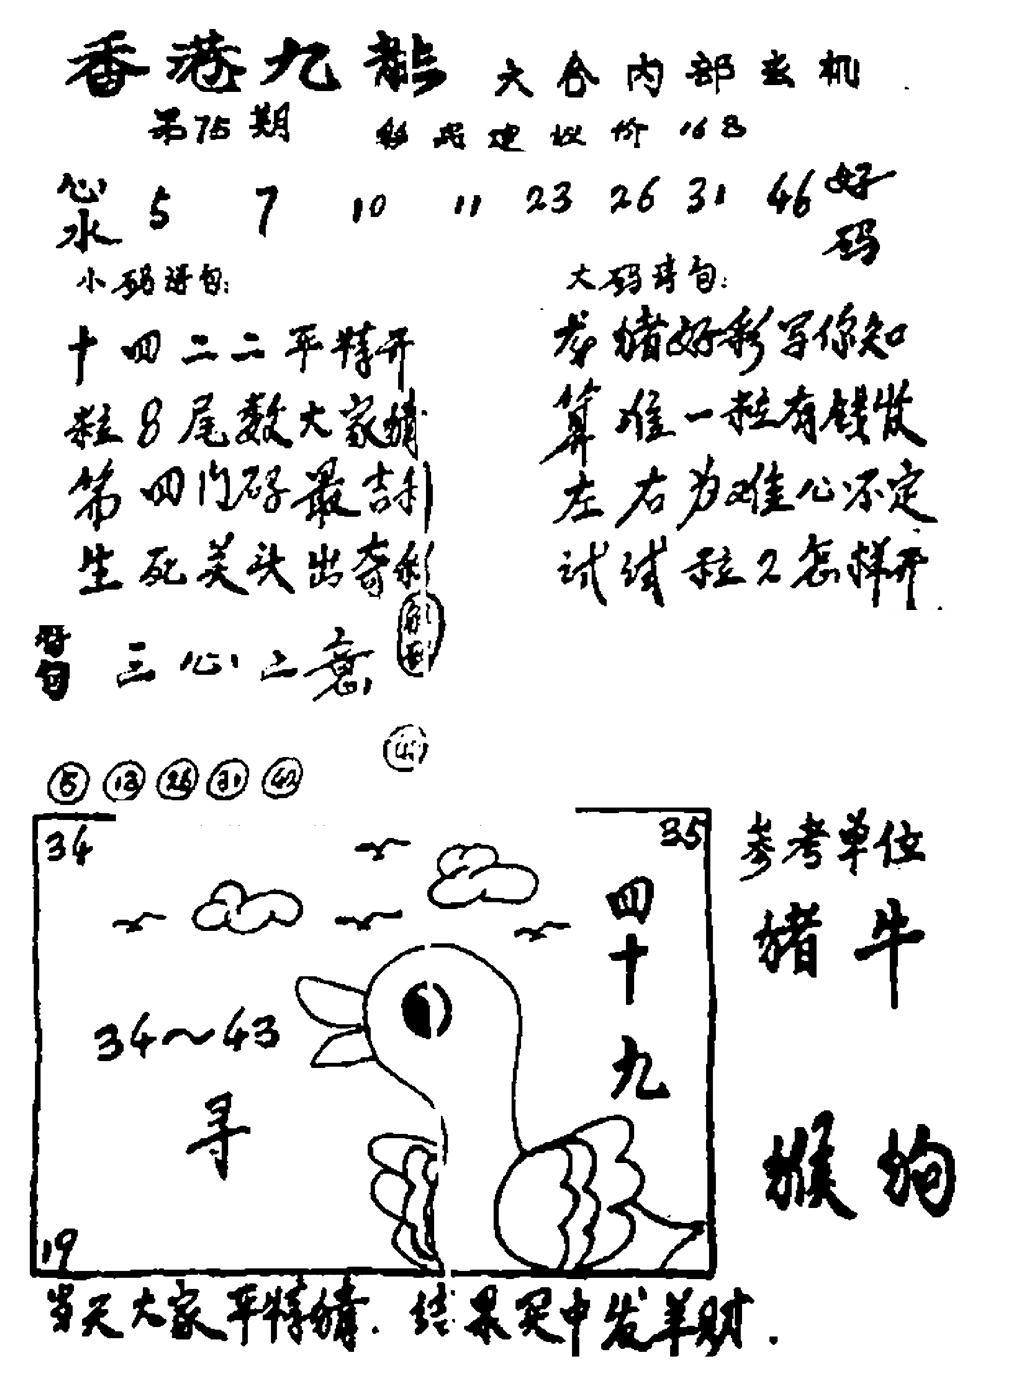 香港九龍 六合内部玄机
第75期 彩民建议价 168
心水 5 7 10 11 23 26 31 46 好码
小码诗句:
十四二二平特开
粒8尾数大家猜
第四门码最吉利
生死关头出奇彩
大码诗句:
龙猪好彩写你知
算准一粒有钱收
左右为难心不定
试试粒2怎样开
三心二意
5 13 26 31 42
34
35
四十九
34~43
寻
19
参考单位
猪 牛
猴 狗
当天大家平特猜. 结果买中发羊财.